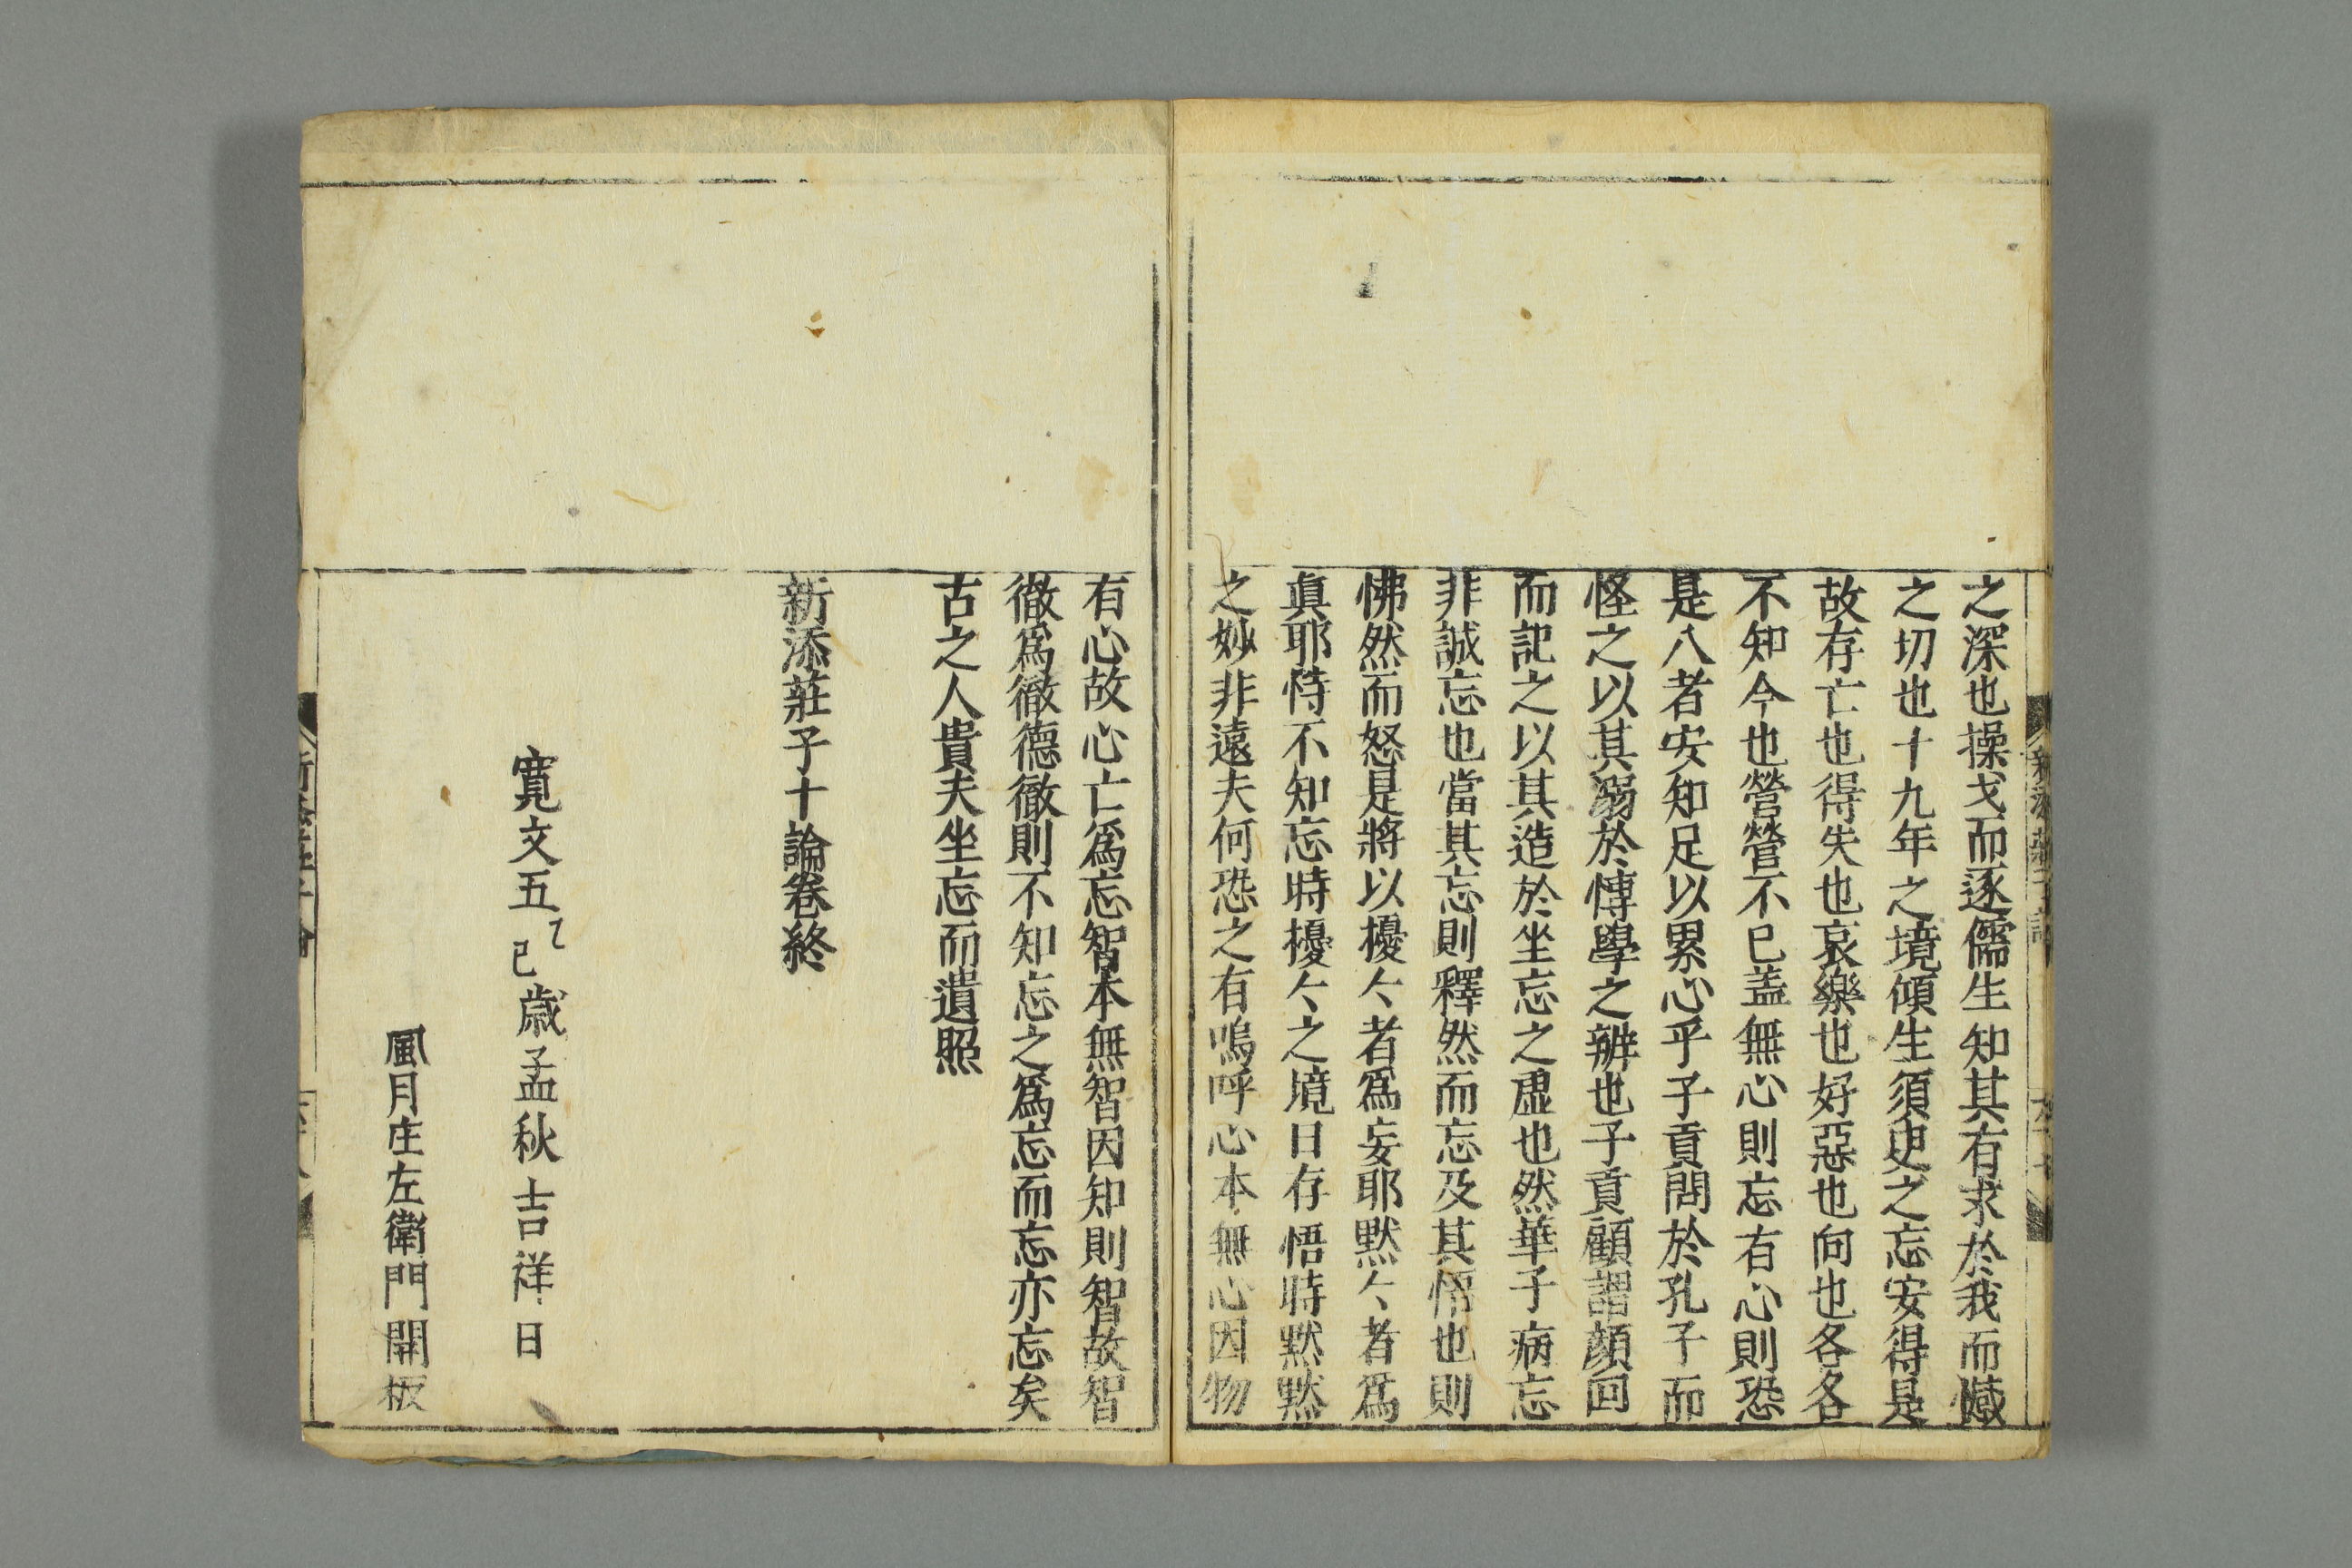 之深也操戈而逐儒生知其有求於我而憾
之切也十九年之境傾生須臾之忘安得是
故存亡也得失也哀樂也好惡也向也各各
不知今也營營不已盖無心則忘有心則恐
是八者安知足以累心乎子貢問於孔子而
怪之以其溺於博學之辨也子貢顧謂顏回
而記之以其造於坐忘之虛也然華子病忘
非誠忘也當其忘則釋然而忘及其悟也則
怫然而怒是將以擾々者爲妄耶默々者爲
眞耶恃不知忘時擾々之境日存悟時默默
之妙非遠夫何恐之有嗚呼心本無心因物
有心故心亡爲忘智本無智因知則智故智
徹爲徹德徹則不知忘之爲忘而忘亦忘矣
古之人貴夫坐忘而遺照
新添莊子十論卷終
寛文五乙巳歳孟秋吉祥日
風月庄左衛門開板